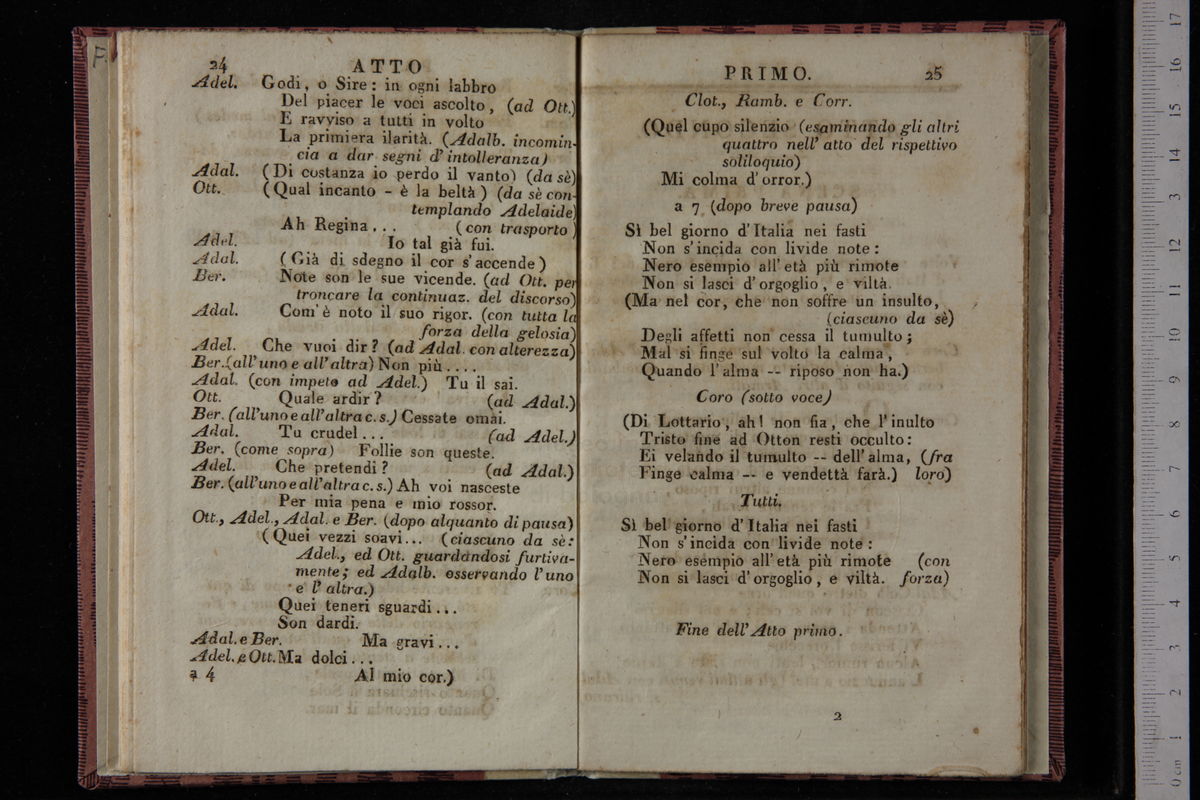 24 ATTO
Adel. Godi, o Sire: in ogni labbro
Del piacer le voci ascolto, (ad Ott.)
E ravviso a tutti in volto
La primiera ilarità. (Adalb. incomin-
cia a dar segni d'intolleranza)
Adal. (Di costanza io perdo il vanto) (da sè)
Ott. (Qual incanto - è la beltà) (da sè con-
templando Adelaide)
Ah Regina... (con trasporto)
Adel. Io tal già fui.
Adal. (Già di sdegno il cor s'accende)
Ber. Note son le sue vicende. (ad Ott. per
troncare la continuaz. del discorso)
Adal. Com'è noto il suo rigor. (con tutta la
forza della gelosia)
Adel. Che vuoi dir? (ad Adal. con alterezza)
Ber. (all'uno e all'altra) Non più....
Adal. (con impeto ad Adel.) Tu il sai.
Ott. Quale ardir? (ad Adal.)
Ber. (all'uno e all'altra c. s.) Cessate omai.
Adal. Tu crudel... (ad Adel.)
Ber. (come sopra) Follie son queste.
Adel. Che pretendi? (ad Adal.)
Ber. (all'uno e all'altra c. s.) Ah voi nasceste
Per mia pena e mio rossor.
Ott., Adel., Adal. e Ber. (dopo alquanto di pausa)
(Quei vezzi soavi... (ciascuno da sè:
Adel., ed Ott. guardandosi furtiva-
mente; ed Adalb. osservando l'uno
e l'altra.)
Quei teneri sguardi...
Son dardi.
Adal. e Ber. Ma gravi...
Adel. e Ott. Ma dolci...
a 4 Al mio cor.)
PRIMO. 25
Clot., Ramb. e Corr.
(Quel cupo silenzio (esaminando gli altri
quattro nell' atto del rispettivo
soliloquio)
Mi colma d'orror.)
a 7 (dopo breve pausa)
Sì bel giorno d'Italia nei fasti
Non s'incida con livide note:
Nero esempio all'età più rimote
Non si lasci d'orgoglio, e viltà.
(Ma nel cor, che non soffre un insulto,
(ciascuno da sè)
Degli affetti non cessa il tumulto;
Mal si finge sul volto la calma,
Quando l'alma -- riposo non ha.)
Coro (sotto voce)
(Di Lottario, ah! non fia, che l'inulto
Tristo fine ad Otton resti occulto:
Ei velando il tumulto -- dell'alma, (fra
Finge calma -- e vendettà farà.) loro)
Tutti.
Sì bel giorno d'Italia nei fasti
Non s'incida con livide note:
Nero esempio all'età più rimote (con
Non si lasci d'orgoglio, e viltà. forza)
Fine dell'Atto primo.
2
0 cm 1 2 3 4 5 6 7 8 9 10 11 12 13 14 15 16 17